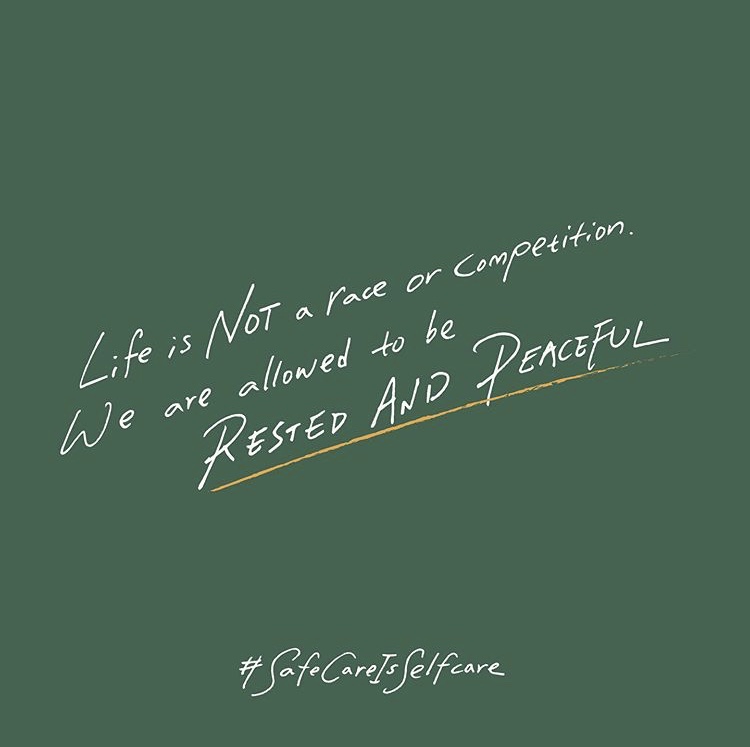 Life is NOT a race or competition.
We are allowed to be
RESTED AND PEACEFUL
#SafeCareIsSelfcare